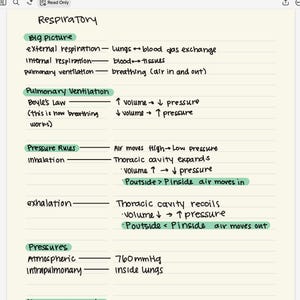 Read Only
Respiratory
Big Picture
external respiration — lungs ↔ blood gas exchange
internal respiration — blood ↔ tissues
pulmonary ventilation — breathing (air in and out)
Pulmonary Ventilation
Boyle's Law — ↑ volume → ↓ pressure
(this is how breathing works) ↓ volume → ↑ pressure
Pressure Rules — Air moves High → Low pressure
inhalation — Thoracic cavity expands
· volume ↑ → ↓ pressure
Poutside > Pinside air moves in
exhalation — Thoracic cavity recoils
· volume ↓ → ↑ pressure
Poutside < Pinside air moves out
Pressures
Atmospheric — 760 mmHg
intrapulmonary — inside lungs